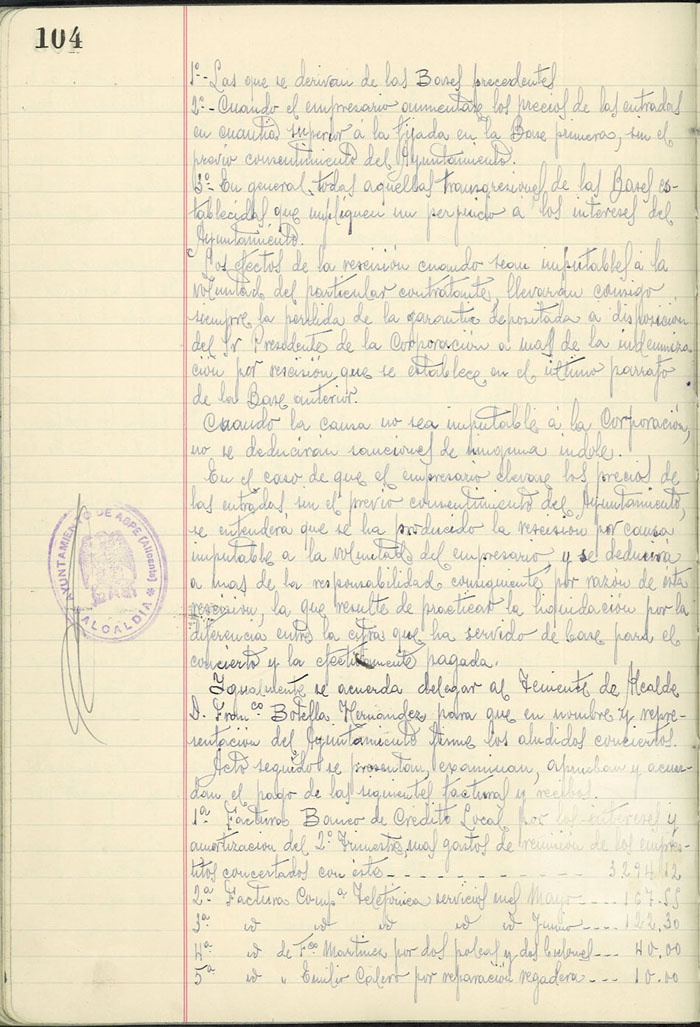 104
1º- Las que se derivan de las Bases precedentes
2º- Cuando el empresario aumentase los precios de las entradas
en cuantia superior á la fijada en la Base primera, sin el
previo consentimiento del Ayuntamiento.
3º- En general todas aquellas transgresiones de las Bases es-
tablecidas que impliquen un perjuicio á los intereses del
Ayuntamiento.
Los efectos de la rescisión cuando sean imputables á la
voluntad del particular contratante, llevarán consigo
siempre la perdida de la garantia depositada a disposición
del Sr Presidente de la Corporación a mas de la indemniza-
ción por rescisión que se establece en el último parrafo
de la Base anterior.
Cuando la causa no sea imputable á la Corporación,
no se deducirán sanciones de ninguna indole.
En el caso de que el empresario elevase los precios de
las entradas sin el previo consentimiento del Ayuntamiento,
se entenderá que se ha producido la rescisión por causa
imputable a la voluntad del empresario, y se deducirá
a mas de la responsabilidad consiguiente por razón de esta
rescisión, la que resulte de practicar la liquidación por la
diferencia entre la cifra que ha servido de base para el
concierto y la efectivamente pagada.
Igualmente se acuerda delegar al Teniente de Alcalde
D. Franco Botella Hernández para que en nombre y repre-
sentación del Ayuntamiento firme los aludidos conciertos.
Acto seguido se presentan, examinan, aprueban y acuer-
dan el pago de las siguientes facturas y recibos.
1ª Factura Banco de Credito Local por los intereses y
amortizacion del 2º Trimestre, mas gastos de remisión de los empres-
titos concertados con éste - - - - - - - - - - 3294,12
2ª Factura Compª Telefonica servicios mes Mayo - - - 167.55
3ª id id id id Junio - - - 122,30
4ª id de Fco Martinez por dos poleas y dos - - - 40,00
5ª id " Emilio Calero por reparación regadera - - - 10.00
AYUNTAMIENTO DE ASPE (Alicante)
* ALCALDIA *